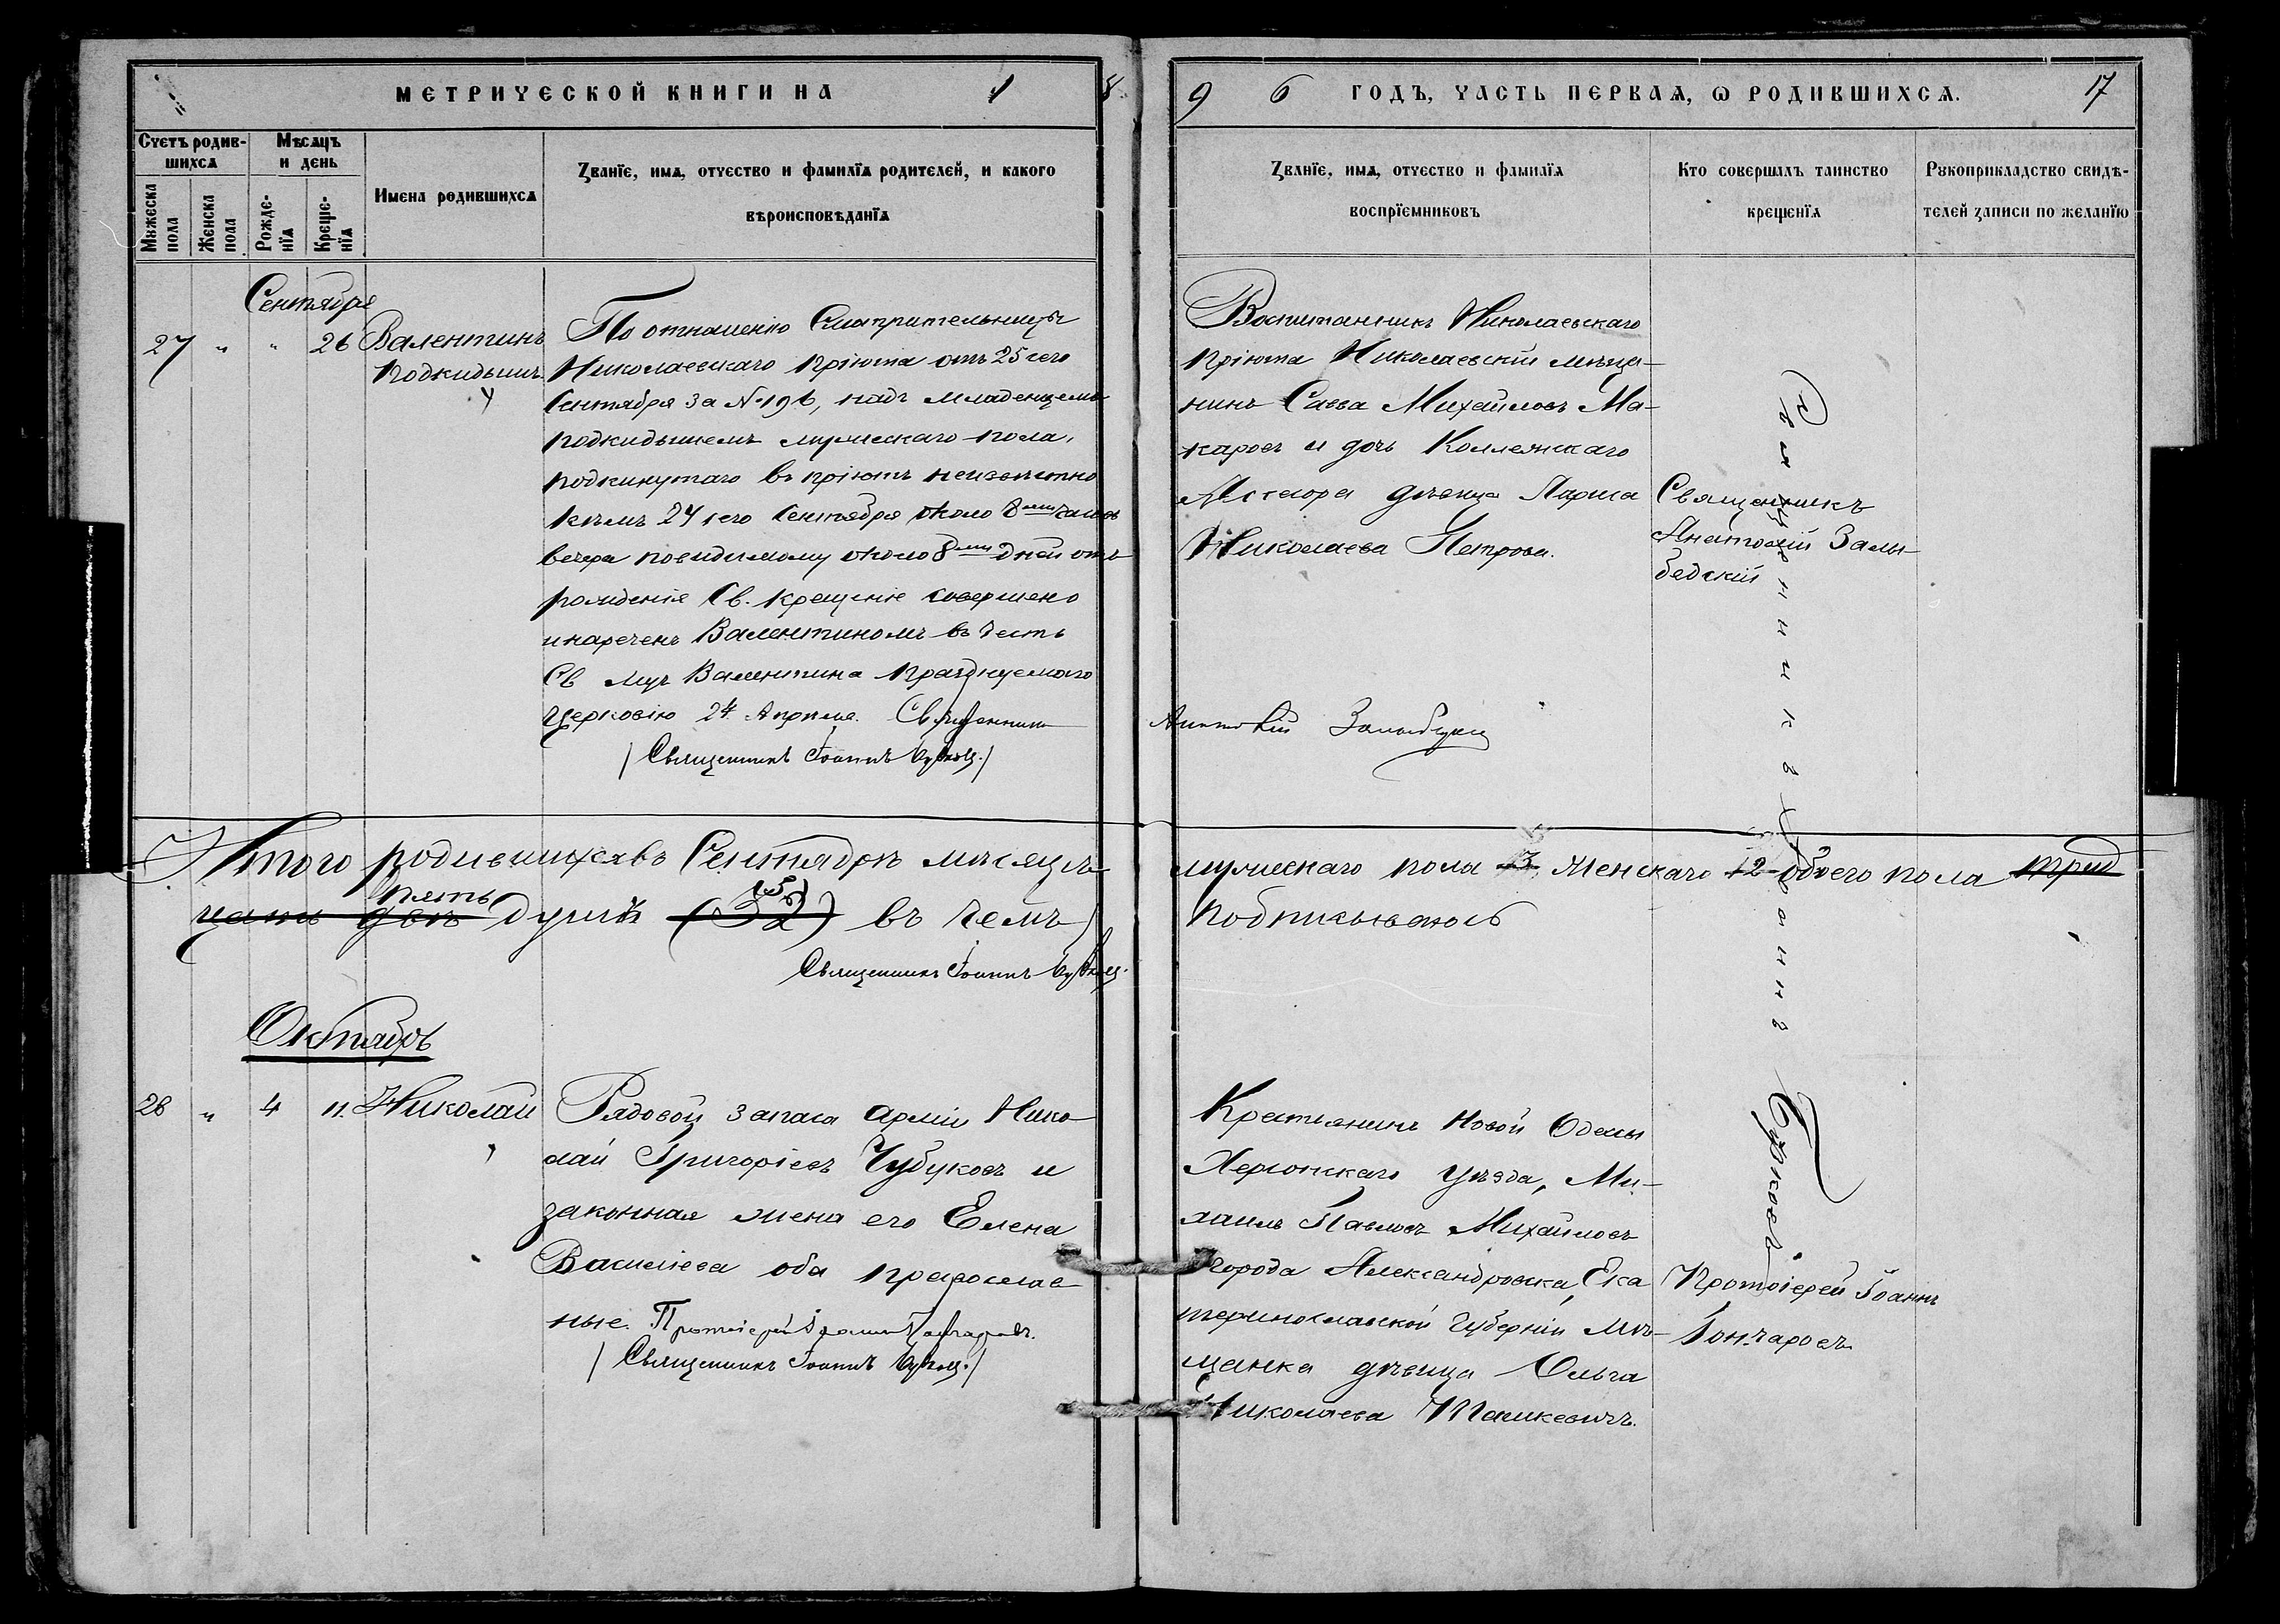 МЕТРИЧЕСКОЙ КНИГИ НА 18
96 ГОДЪ, ЧАСТЬ ПЕРВАЯ, Ѡ РОДИВШИХСЯ. 17
Счетъ родив-
шихся
Мужеска пола
Женска пола
Мѣсяцъ
и день
Рожде-
нїя
Креще-
нїя
Имена родившихся
Званїе, имя, отчество и фамилїя родителей, и какого
вѣроисповѣданїя
Званїе, имя, отчество и фамилїя
воспрїемниковъ
Кто совершалъ таинство
крещенїя
Рукоприкладство свидѣ-
телей записи по желанїю
Сентября
27 " " 26
Валентинъ
подкидышъ
По отношенію Смотрительницы
Николаевскаго пріюта отъ 25 сего
Сентября за № 196, надъ младенцемъ
подкидышемъ мужескаго пола,
подкинутаго въ пріютъ неизвѣстно
кѣмъ 24 сего Сентября около 8ми часовъ
вечера повидимому около 8ми дней отъ
рожденія Св. крещеніе совершено
и нареченъ Валентиномъ въ честь
Св муч Валентина празднуемаго
Церковію 24 Апрѣля. Священникъ
/Священникъ Іоаннъ
Воспитанникъ Николаевскаго
пріюта Николаевскій мѣща-
нинъ Савва Михайловъ Ма-
каровъ и дочь Коллежскаго
Ассесора дѣвица Лариса
Николаева Петрова.
Священникъ
Анатолій Залы-
бедскій
Священникъ Іоаннъ
Итого родившихся въ Сентябрѣ мѣсяцѣ
мужескаго пола 13 женскаго 12 обоего пола трид
цать двѣ пять душъ (32) въ чемъ
подписываюсь
Священникъ Іоаннъ
Октябрь
28 " 4 11. Николай
Рядовой запаса арміи Нико-
лай Григоріевъ Чубуковъ и
законная жена его Елена
Василіева оба православ-
ные. Протоіерей Іоаннъ Гончаровъ.
/Священникъ Іоаннъ
Крестьянинъ Новой Одессы
Херсонскаго уѣзда, Ми-
хаилъ Павловъ Михайловъ
города Александровска, Ека
теринославской Губерніи мѣ-
щанка дѣвица Ольга
Николаева Машкевичъ.
Протоіерей Іоаннъ
Гончаровъ